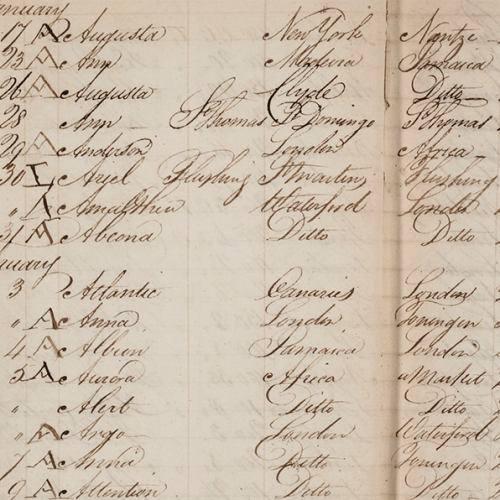 nuary
17 A Augusta New York Nantz
23 A Ann Madeira Jamaica
26 A Augusta Clyde Ditto
28 Ann St Thomas St Domingo St Thomas
29 A Anderson London Africa
30 L Ariel Flushing St Martins Flushing
" A Amalthea Waterford London
31 A Abeona Ditto Ditto
ruary
3 Atlantic Canaries London
" A Anna London Toningen
4 A Albion Jamaica London
5 A Aurora Africa a Market
" Alert Ditto Ditto
" A Argo London Waterford
7 A Anna Ditto Toningen
9 A Attention Ditto Ditto